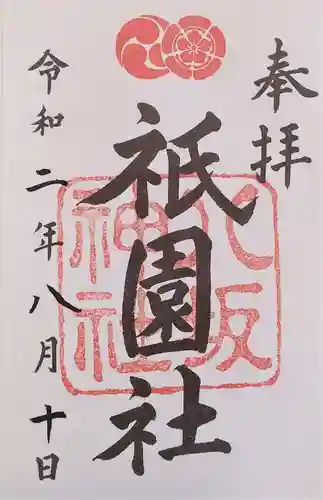 奉拝
八坂神社
祇園社
令和二年八月十日